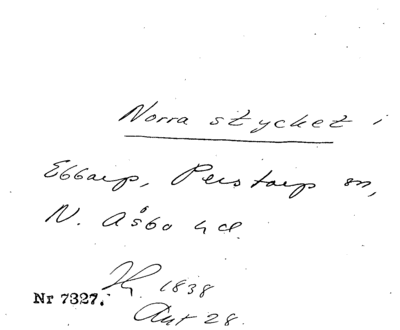 Norra stycket i
Ebbarp, Perstorp sn,
N. Åsbo hd.
1838
Nr 7327.
Ant 28.